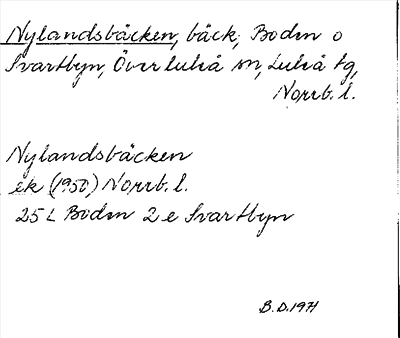 Nylandsbäcken, bäck, Boden o
Svartbyn, Överluleå sn, Luleå tg,
Norrb. l.
Nylandsbäcken
ek (1950) Norrb. l.
25 L Boden 2 e Svartbyn
B.D. 1971